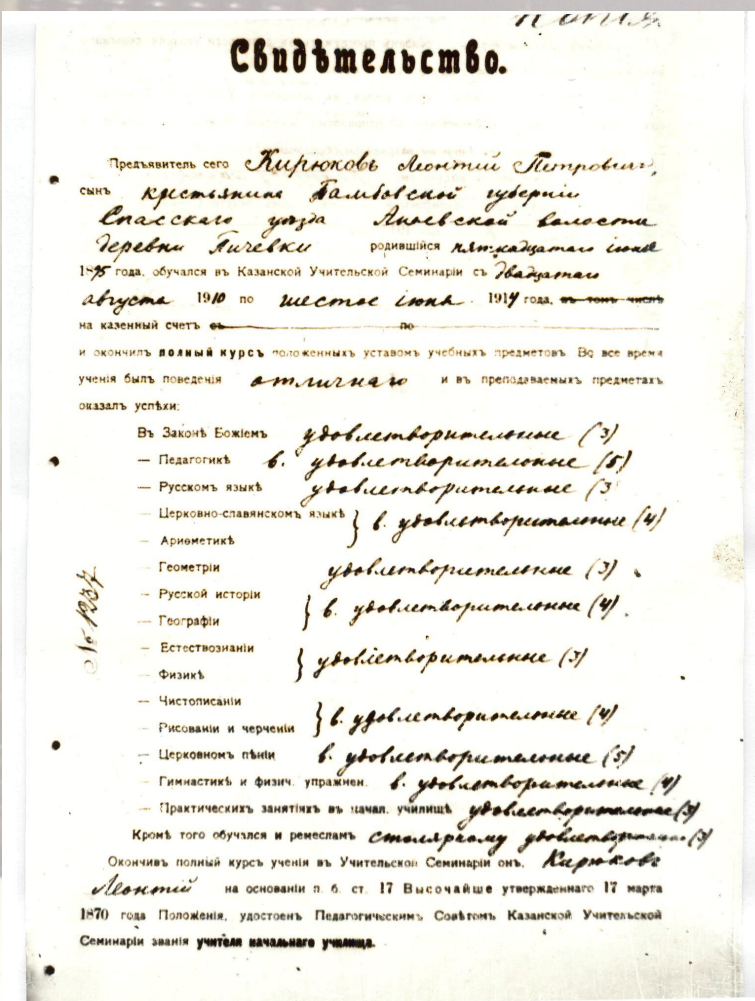 Копія
Свидѣтельство.
Предъявитель сего Кирюковъ Леонтій Петровичъ,
сынъ крестьянина Тамбовской губерніи
Спасскаго уѣзда Анаевской волости
деревни Пичевки родившійся пятнадцатаго іюня
1895 года, обучался въ Казанской Учительской Семинаріи съ двадцатаго
августа 1910 по шестое іюня 1914 года, въ томъ числѣ
на казенный счетъ съ по
и окончилъ полный курсъ положенныхъ уставомъ учебныхъ предметовъ. Во все время
ученія былъ поведенія отличнаго и въ преподаваемыхъ предметахъ
оказалъ успѣхи:
Въ Законѣ Божіемъ удовлетворительные (3)
— Педагогикѣ в. удовлетворительные (5)
— Русскомъ языкѣ удовлетворительные (3
— Церковно-славянскомъ языкѣ } в. удовлетворительные (4)
— Ариѳметикѣ
— Геометріи удовлетворительные (3)
— Русской исторіи } в. удовлетворительные (4)
— Географіи
— Естествознаніи } удовлетворительные (3)
— Физикѣ
— Чистописаніи } в. удовлетворительные (4)
— Рисованіи и черченіи
— Церковномъ пѣніи в. удовлетворительные (5)
— Гимнастикѣ и физич. упражнен. в. удовлетворительные (4)
— Практическихъ занятіяхъ въ начал. училищѣ удовлетворительные (3)
Кромѣ того обучался и ремесламъ столярному удовлетворительно (3)
Окончивъ полный курсъ ученія въ Учительской Семинаріи онъ, Кирюковъ
Леонтій на основаніи п. б. ст. 17 Высочайше утвержденнаго 17 марта
1870 года Положенія, удостоенъ Педагогическимъ Совѣтомъ Казанской Учительской
Семинаріи званія учителя начальнаго училища.
№ 1237